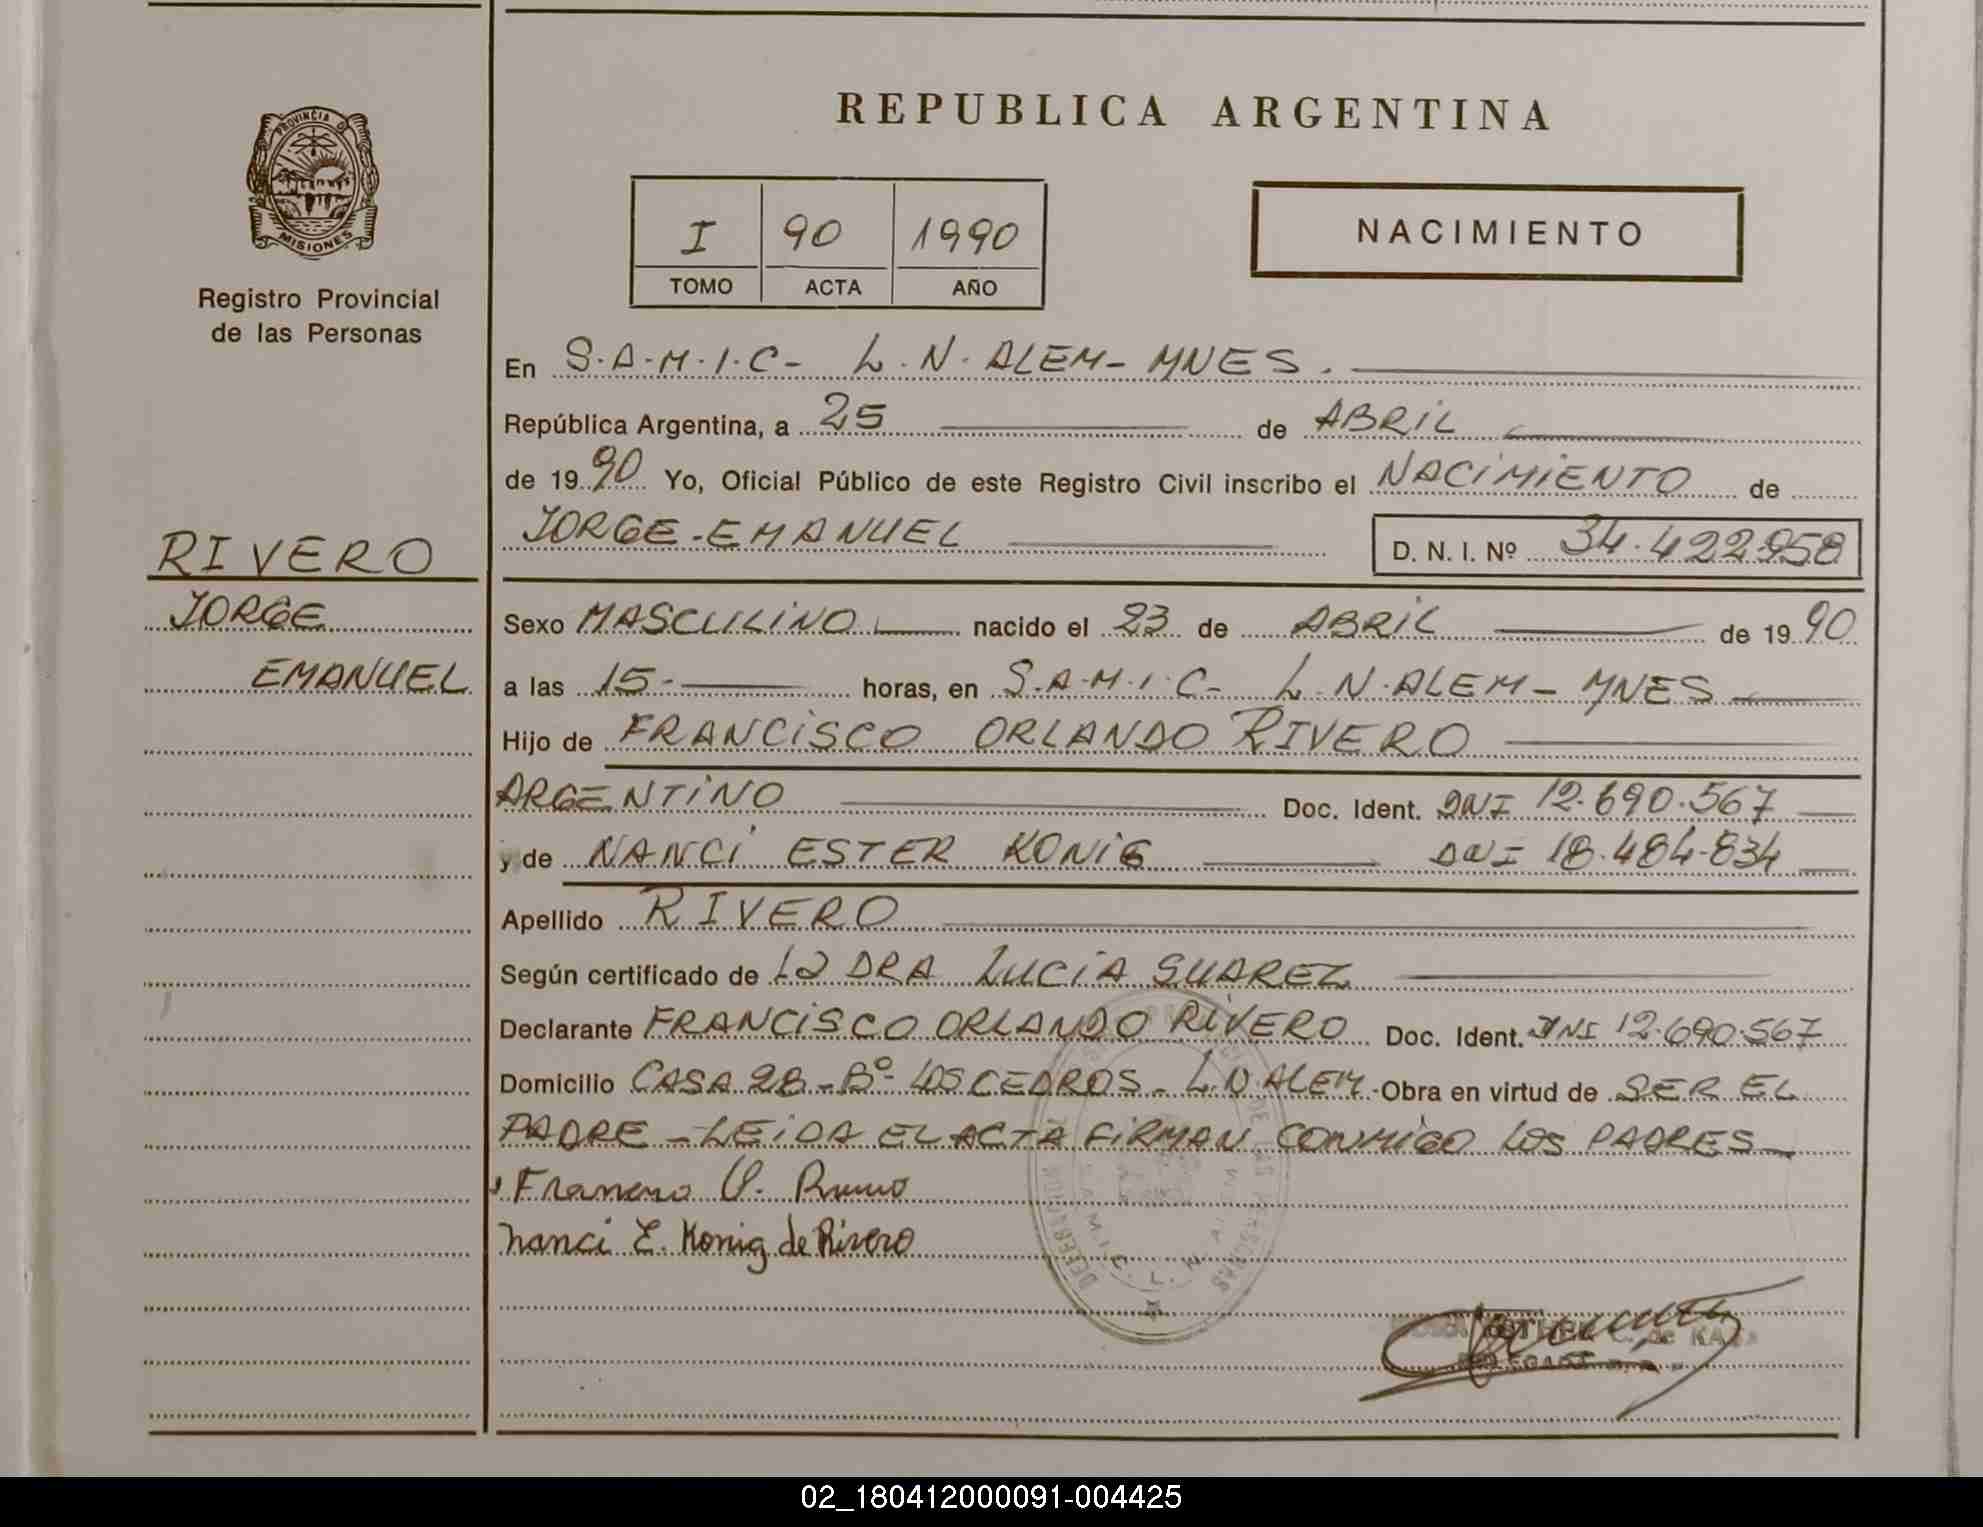 REPUBLICA ARGENTINA
PROVINCIA DE
MISIONES
Registro Provincial
de las Personas
I 90 1990
TOMO ACTA AÑO
NACIMIENTO
En S.A.M.I.C- L.N.ALEM- MNES.
República Argentina, a 25 de ABRIL
de 1990 Yo, Oficial Público de este Registro Civil inscribo el NACIMIENTO de
JORGE-EMANUEL D. N. I. Nº 34.422.958
RIVERO
JORGE
EMANUEL
Sexo MASCULINO nacido el 23 de ABRIL de 1990
a las 15- horas, en S.A.M.I.C- L.N.ALEM- MNES
Hijo de FRANCISCO ORLANDO RIVERO
ARGENTINO Doc. Ident. DNI 12.690.567
y de NANCI ESTER KONIG DNI 18.484.834
Apellido RIVERO
Según certificado de LA DRA LUCIA SUAREZ
Declarante FRANCISCO ORLANDO RIVERO Doc. Ident. DNI 12.690.567
Domicilio CASA 28-Bº-LOS CEDROS-L.N.ALEM- Obra en virtud de SER EL
PADRE-LEIDA EL ACTA FIRMAN CONMIGO LOS PADRES-
Francisco O. Rivero
Nanci E. Konig de Rivero
DE LAS PERSONAS
de
02_180412000091-004425